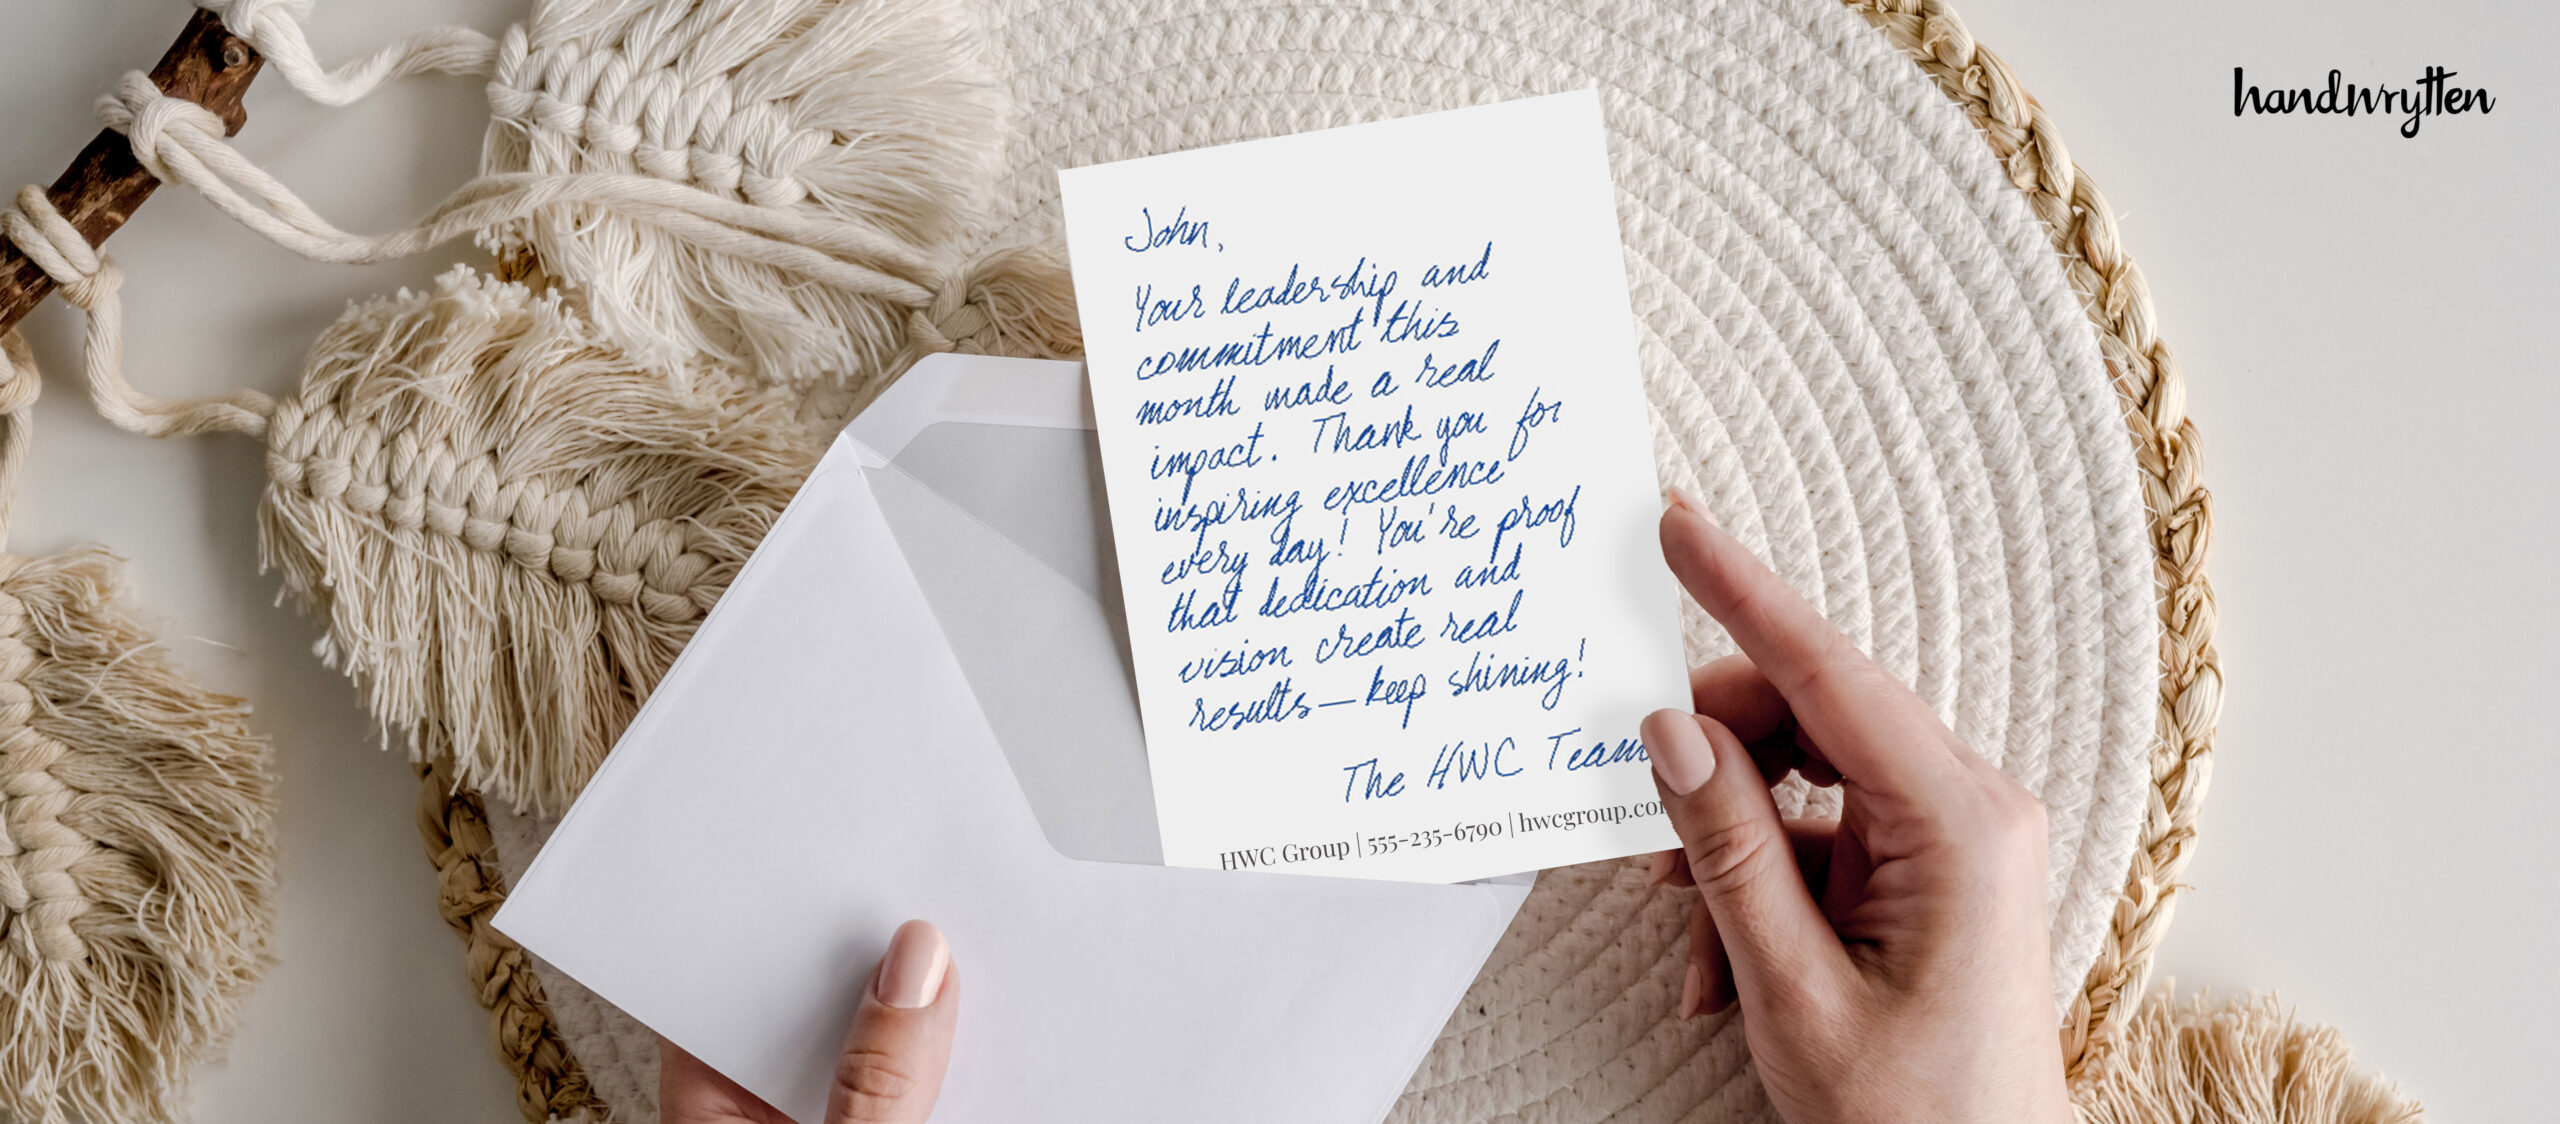 handwrytten
John,
Your leadership and
commitment this
month made a real
impact. Thank you for
inspiring excellence
every day! You're proof
that dedication and
vision create real
results—keep shining!
The HWC Team
HWC Group | 555-235-6790 | hwcgroup.com